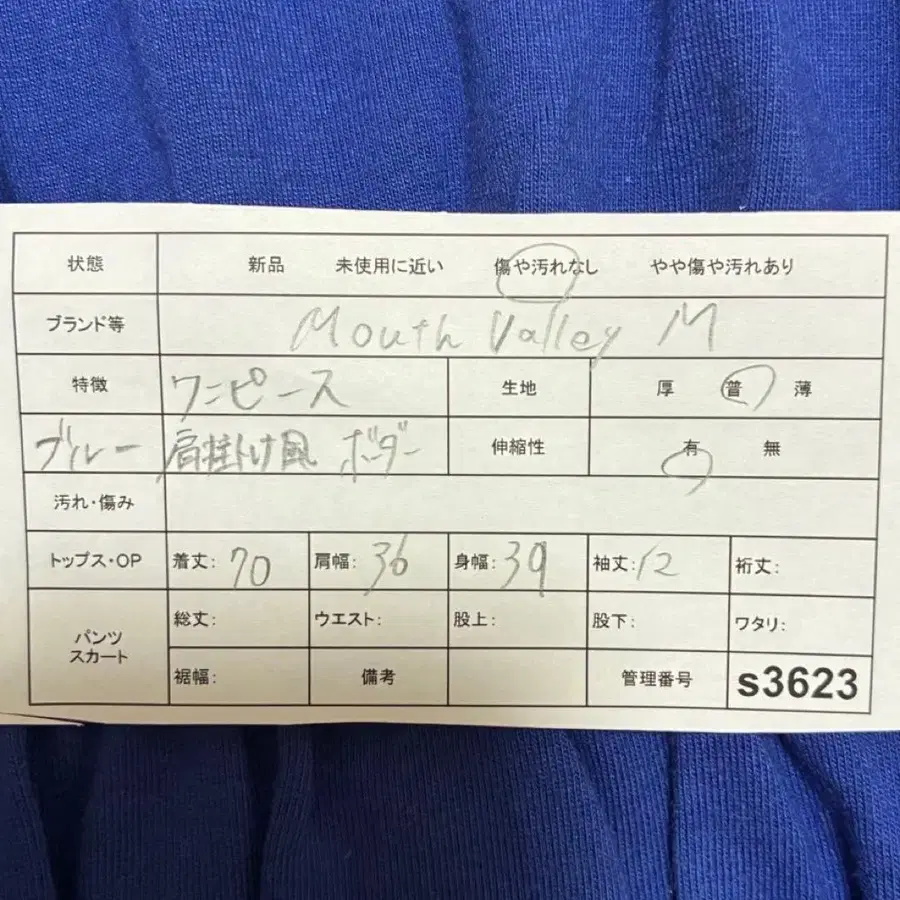 状態 新品 未使用に近い 傷や汚れなし やや傷や汚れあり
ブランド等 Mouth Valley M
特徴 ワンピース 生地 厚 普 薄
ブルー 肩掛け風 ボーダー 伸縮性 有 無
汚れ・傷み
トップス・OP 着丈: 70 肩幅: 36 身幅: 39 袖丈: 12 裄丈:
パンツ スカート 総丈: ウエスト: 股上: 股下: ワタリ:
裾幅: 備考 管理番号 s3623